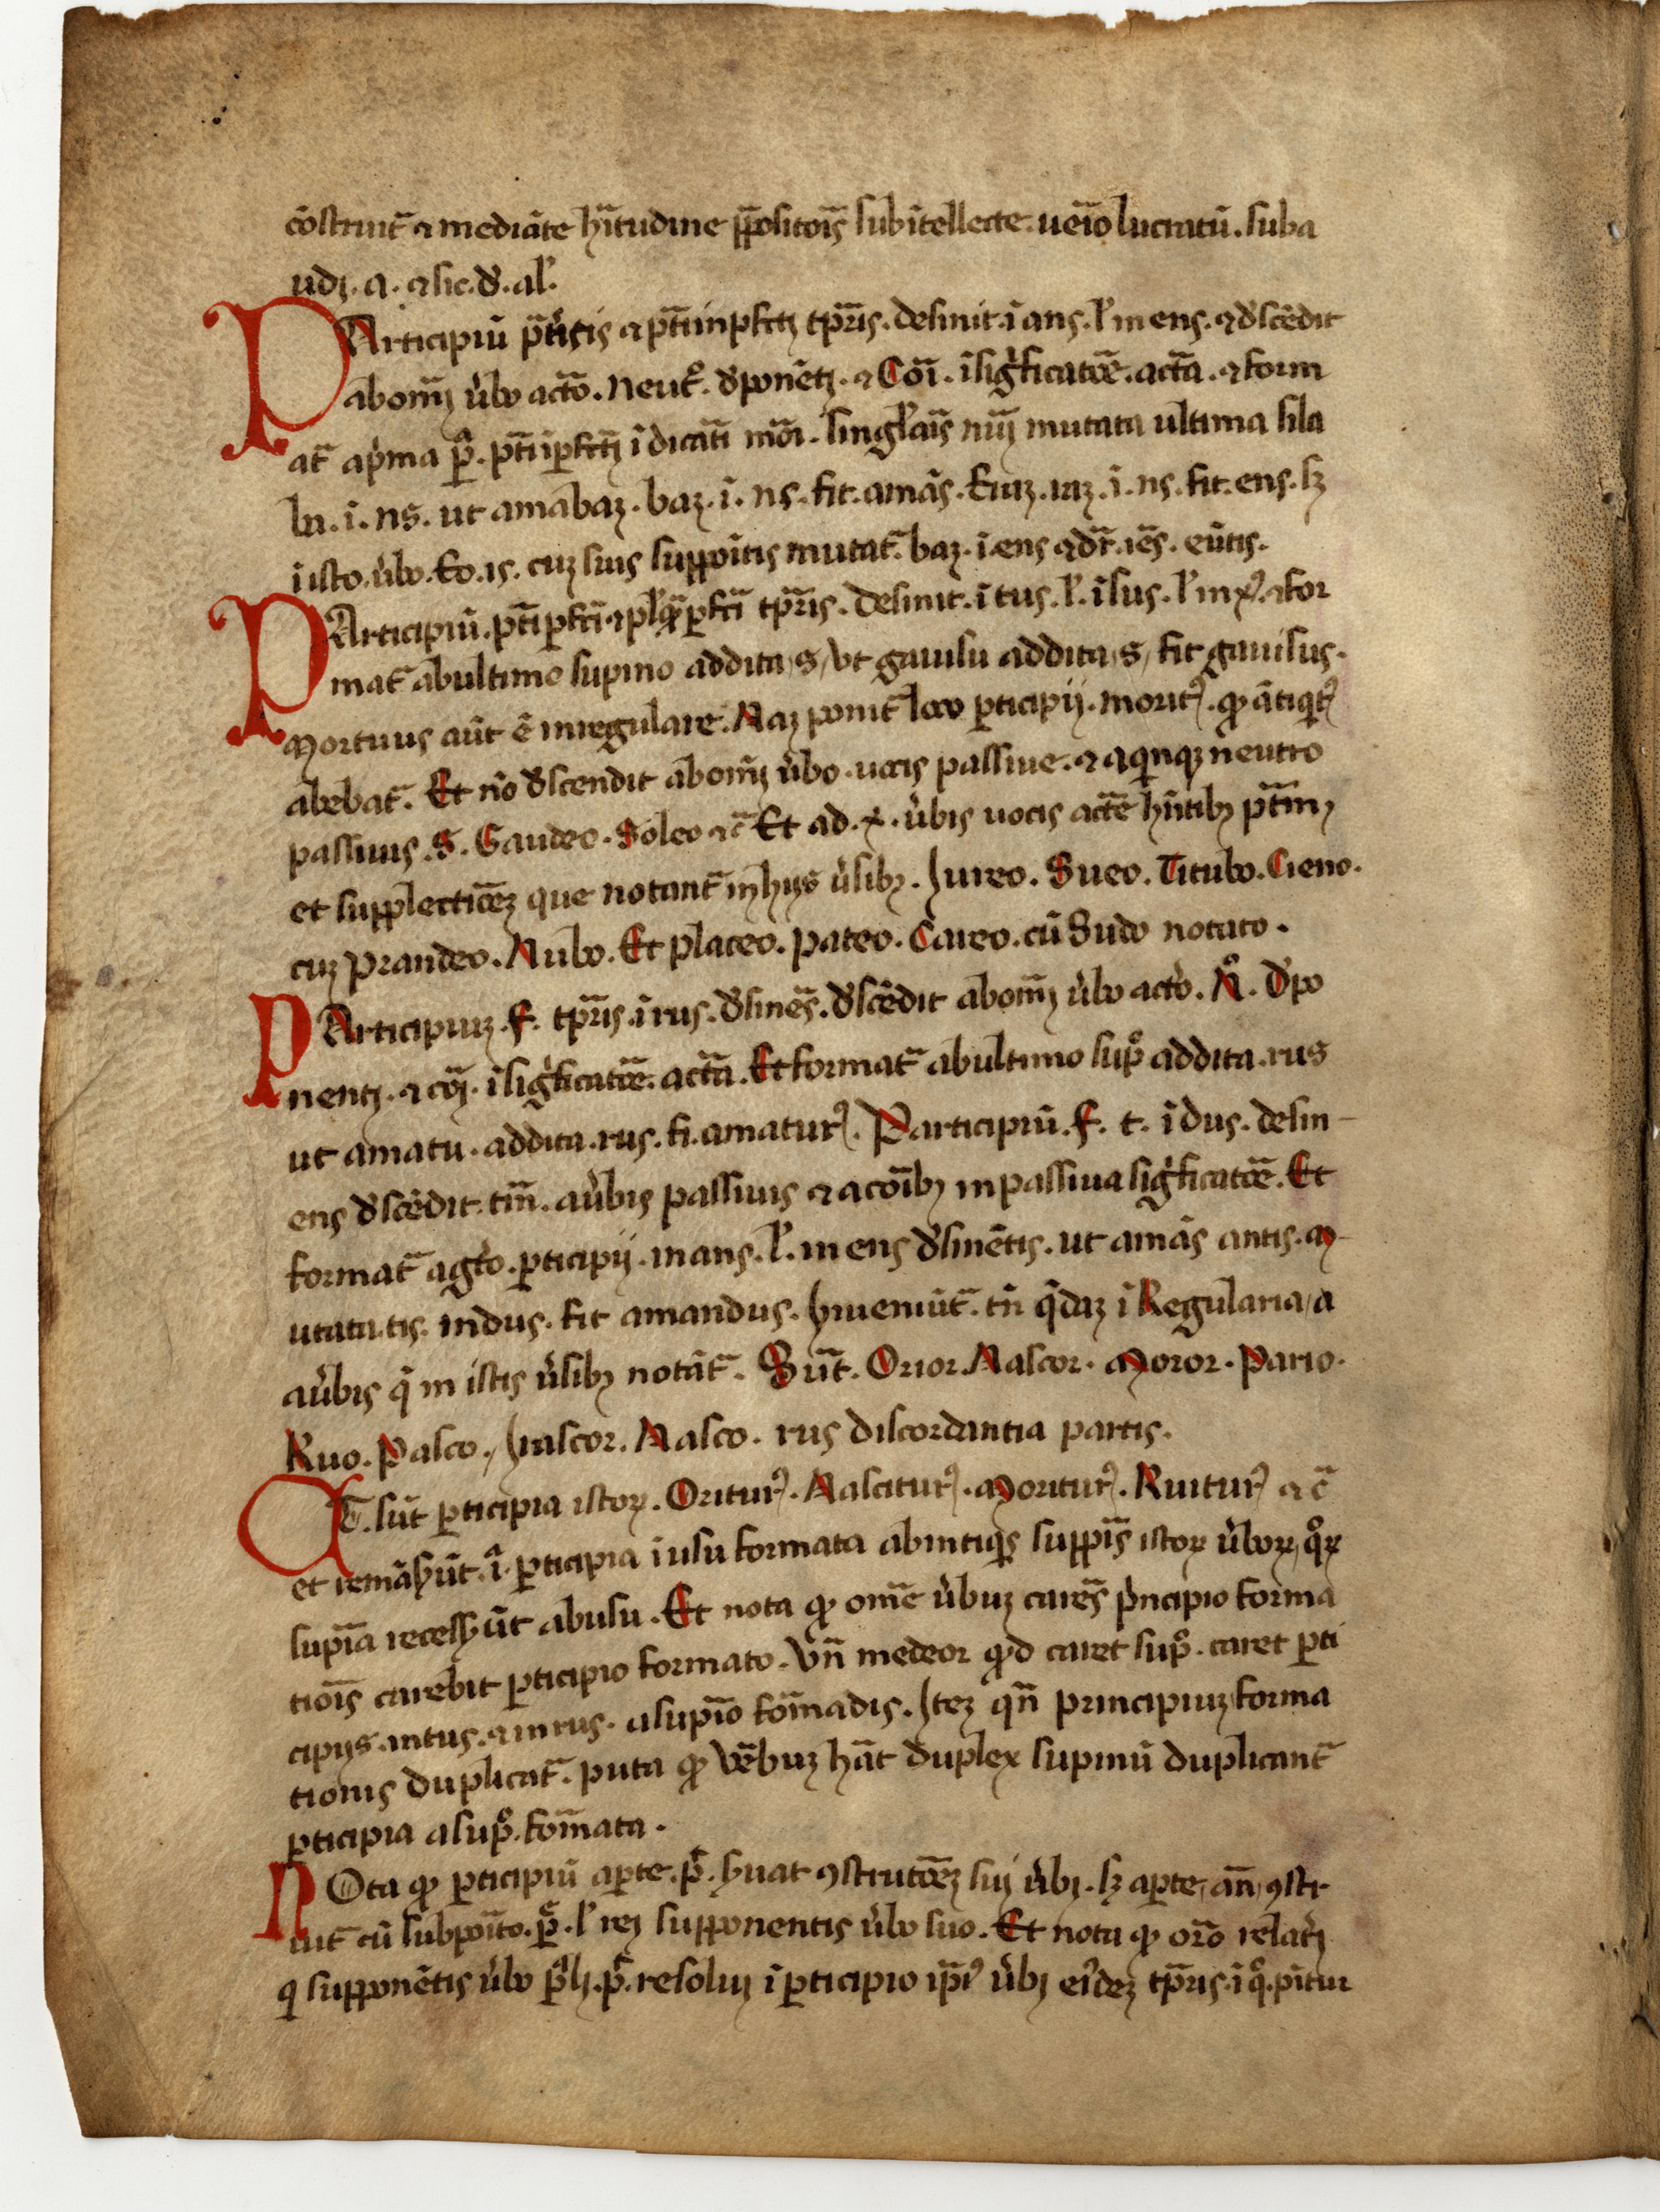 cōstruit̄ ⁊ mediāte hītudine ꝓpositoīs subītellecte. uēio lucratū. suba
udi. a. ⁊ sic. đ. al'.
PArticipiū p̄ntis ⁊ p̄ti inꝑfcti tp̄ris. desinit. ī ans. ł in ens. ⁊ đscēdit
ab om̄i u̇bo acto. Neut͛o. đponēti. ⁊ Cōi. ī sigīficatōe. actā. ⁊ form
at̄ a p͛ma ꝑ. p̄ti īꝑfcti īdicati mōi. singl'aīs nūi mutata ultima sila
ba. ī. ns. ut amabaz. baz. ī. ns. fit. amās. Euz. uz. ī. ns. fit. ens. sz
ī isto. u̇bo. Eo. is. cuz suis suppoītis mutat̄. baz. ī ens ⁊ dr̄. iēs. eūtis.
PArticipiū. p̄ti ꝑfcti ⁊ pl'q̄ꝑfcti tp̄ris. desinit. ī tus. ł. ī sus. ł in xꝰ. ⁊ for
mat̄ ab ultimo supino addita, s, vt gauisu addita, s, fit gauisus.
Mortuus aūt ē inregulare. Naz ponit̄ loco ꝑticipij. moritꝰ. ꝙ ātiqitꝰ
abebat̄. Et nō đscendit ab om̄i u̇bo. uocis passiue. ⁊ a qinqz neutro
passiuis. S. Gaudeo. Soleo ⁊c̄ Et ad. x. u̇bis uocis actē hn̄tibꝫ p̄tm̄
et supplectiōez que notant̄ in hijs u̇sibꝫ. Iureo. Sueo. Titubo. Cieno.
cuz Prandeo. Nubo. Et placeo. pateo. Careo. cū Sudo notato.
PArticipiuz. f. tp̄ris. ī rus. đsinēs. đscēdit ab om̄i u̇bo acto. N͛o. Đpo
nenti. ⁊ cōi. ī sigīficatōe. actā. Et format̄ ab ultimo sup͛o addita. rus
ut amatu. addita. rus. fi. amaturꝰ. Participiū. f. t. ī dus. desin-
ens đscēdit. tm̄. a u̇bis passiuis ⁊ a cōibꝫ in passiua sigīficatōe. Et
format̄ a gto. ꝑticipij. in ans. ł. in ens đsinētis. ut amās antis. m-
utata. tis. in dus. fit amandus. Inueniūt̄. tn̄ q̄daz ī Regularia, a
a u̇bis q̄ in istis u̇sibꝫ notāt̄. Sūt. Orior. Nascor. Moror. Pario.
Ruo. Pasco. Iuascor. Nasco. rus discordantia partis.
AT. sūt ꝑticipia istoꝝ. Oriturꝰ. Nasciturꝰ. Moriturꝰ. Ruiturꝰ ⁊c̄
et remāsūt. ī. ꝑticipia ī usu formata ab intiqis suppīs istoꝝ u̇boꝝ, q͛oꝝ
supīa recessūt ab usu. Et nota ꝙ om̄e u̇buz carēs p͛ncipio forma
tiōis carebit ꝑticipio formato. Vn̄ medeor ꝙd caret sup͛o. caret ꝑti
cipijs. in tus. ⁊ in rus. a supīo formādis. Itez qn̄ principiuz forma
tionis duplicat̄. puta ꝙ vērbuz hāt duplex supinū duplicant̄
ꝑticipia a sup͛o. fōmata.
NOta ꝙ ꝑticipiū a ꝑte. p͛. seruat ꝯstructōez sui u̇bi. sz a ꝑte, an̄, ꝯstr
uit̄ cū subpoīto. p͛. ł rei supponentis u̇bo suo. Et nota ꝙ orō relati
qi supponētis u̇bo ꝑsl'i. p͛. resolui ī ꝑticipio ip̄ꝰ u̇bi eīdez tp̄ris. ī q͛o. pītur